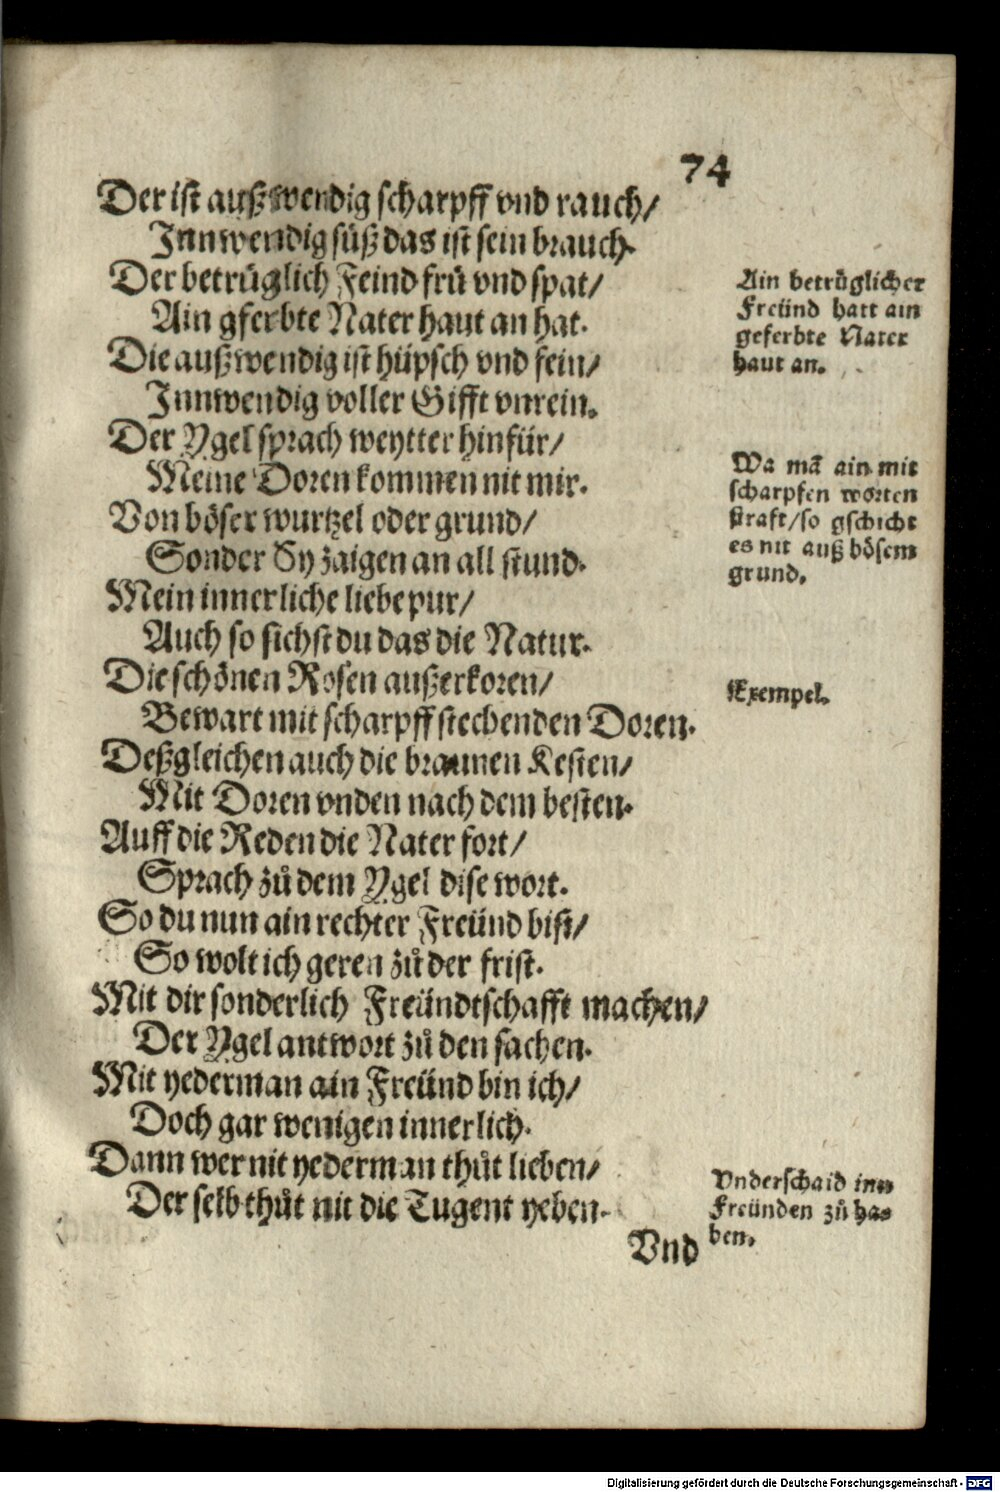 74
Der ist außwendig scharpff vnd rauch/
Innwendig süß das ist sein brauch.
Der betrüglich Feind frü vnd spat/
Ain gferbte Nater haut an hat.
Die außwendig ist hüpsch vnd fein/
Innwendig voller Gifft vnrein.
Der Ygel sprach weytter hinfür/
Meine Doren kommen nit mir.
Von böser wurtzel oder grund/
Sonder Sy zaigen an all stund.
Mein innerliche liebe pur/
Auch so sichst du das die Natur.
Die schönen Rosen außerkoren/
Bewart mit scharpff stechenden Doren.
Deßgleichen auch die braunen Kesten/
Mit Doren vnden nach dem besten.
Auff die Reden die Nater fort/
Sprach zů dem Ygel dise wort.
So du nun ain rechter Freünd bist/
So wolt ich geren zů der frist.
Mit dir sonderlich Freündtschafft machen/
Der Ygel antwort zů den sachen.
Mit yederman ain Freünd bin ich/
Doch gar wenigen innerlich.
Dann wer nit yederman thůt lieben/
Der selb thůt nit die Tugent yeben.
Vnd
Ain betrüglicher
Freünd hatt ain
geferbte Nater
haut an.
Wa mã ain mit
scharpfen worten
straft/so gschicht
es nit auß bösem
grund.
Exempel.
Vnderschaid inn
Freünden zů ha⸗
ben.
Digitalisierung gefördert durch die Deutsche Forschungsgemeinschaft - DFG